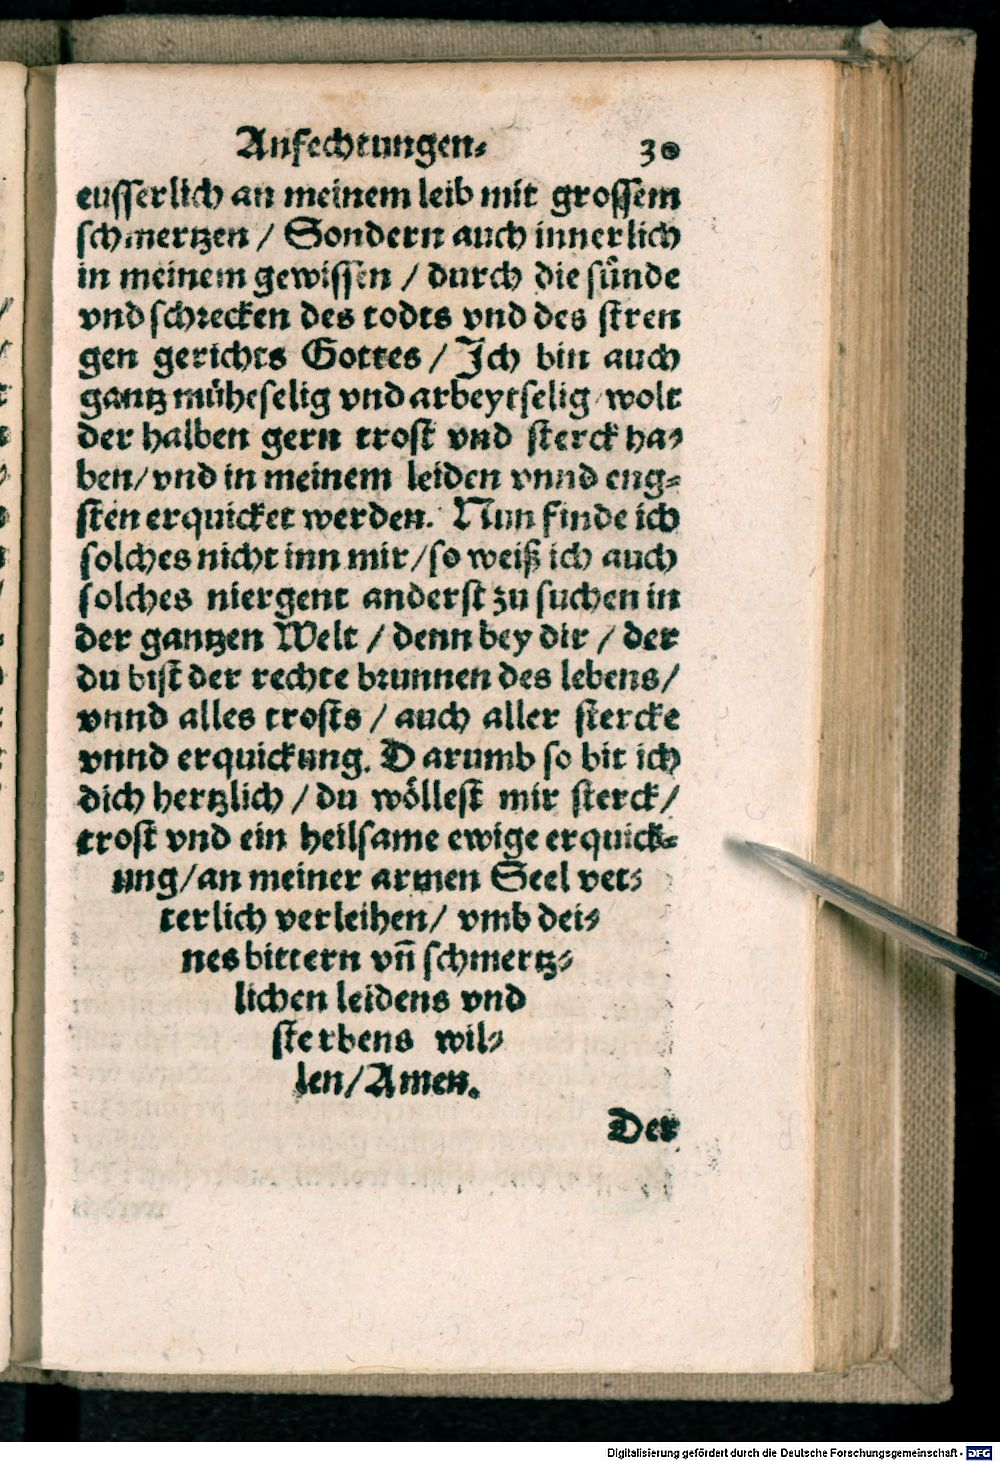 Anfechtungen. 30
eusserlich an meinem leib mit grossem
schmertzen / Sondern auch innerlich
in meinem gewissen / durch die sünde
vnd schrecken des todts vnd des stren
gen gerichts Gottes / Ich bin auch
gantz müheselig vnd arbeytselig / wolt
der halben gern trost vnd sterck ha⸗
ben / vnd in meinem leiden vnnd eng⸗
sten erquicket werden. Nun finde ich
solches nicht inn mir / so weiß ich auch
solches niergent anderst zu suchen in
der gantzen Welt / denn bey dir / der
du bist der rechte brunnen des lebens /
vnnd alles trosts / auch aller stercke
vnnd erquickung. Darumb so bit ich
dich hertzlich / du wöllest mir sterck /
trost vnd ein heilsame ewige erquick⸗
ung / an meiner armen Seel vet⸗
terlich verleihen / vmb dei⸗
nes bittern vñ schmertz⸗
lichen leidens vnd
sterbens wil⸗
len / Amen.
Der
Digitalisierung gefördert durch die Deutsche Forschungsgemeinschaft - DFG